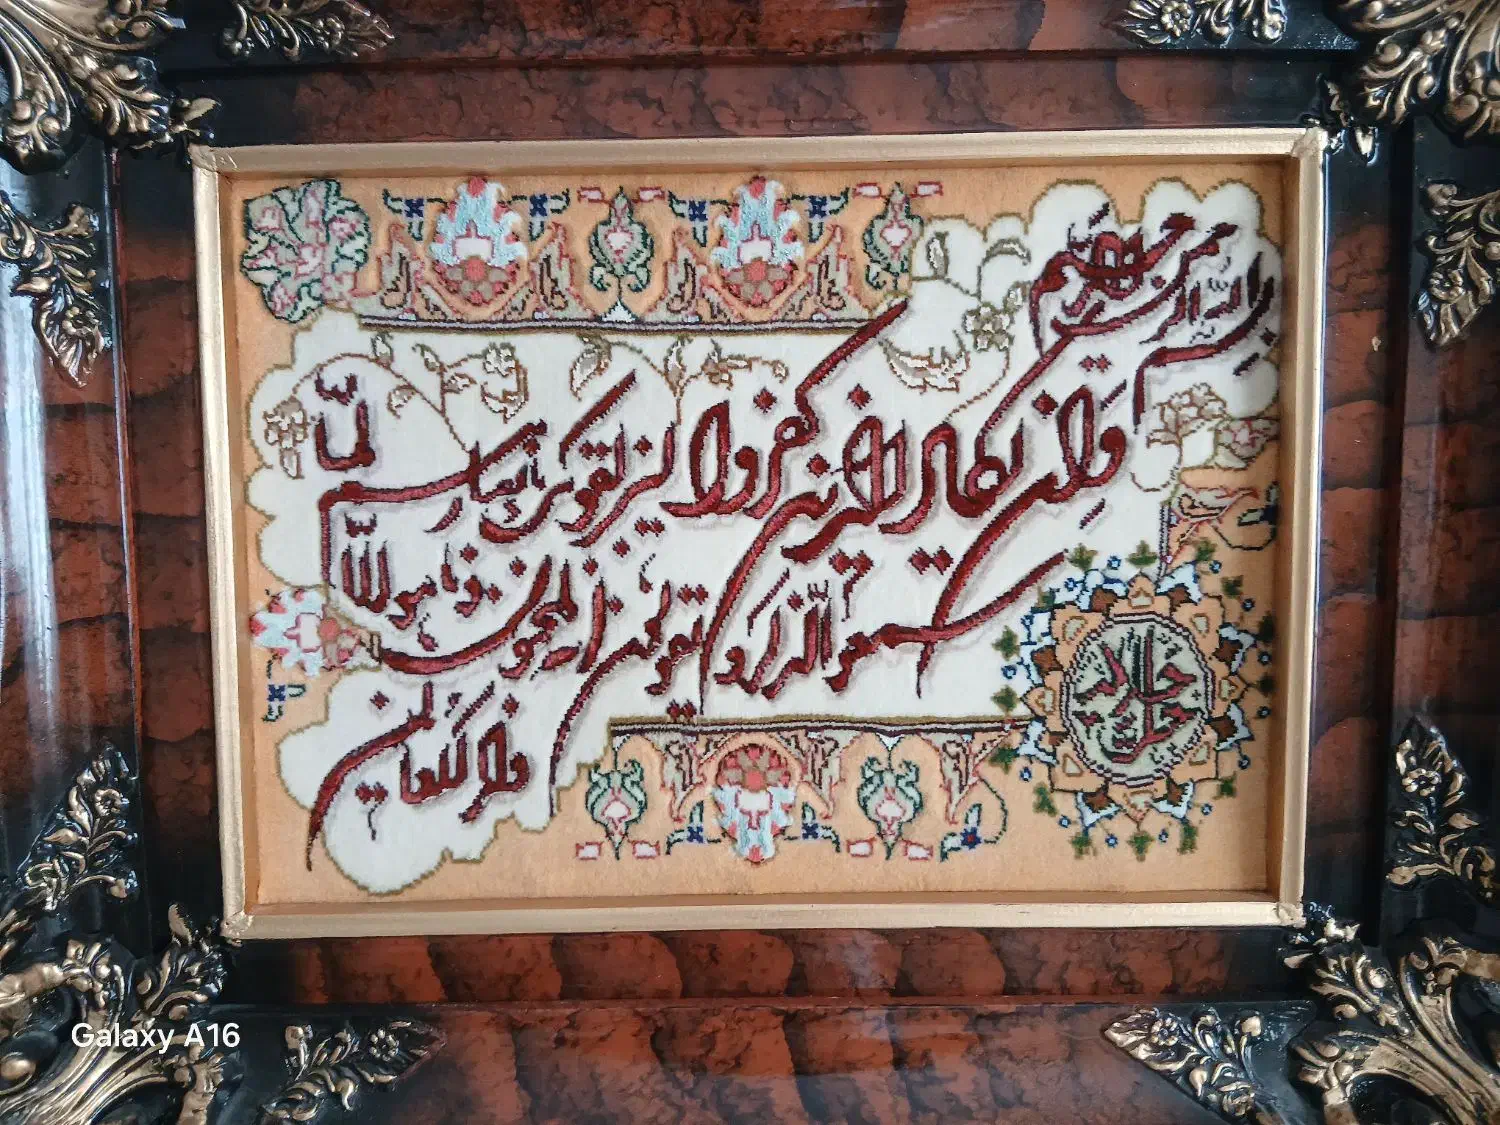 بسم الله الرحمن الرحیم
وان یکاد الذین کفروا لیزلقونک بابصارهم لما
سمعوا الذکر و یقولون انه لمجنون و ما هو الا
ذکر للعالمین
Galaxy A16